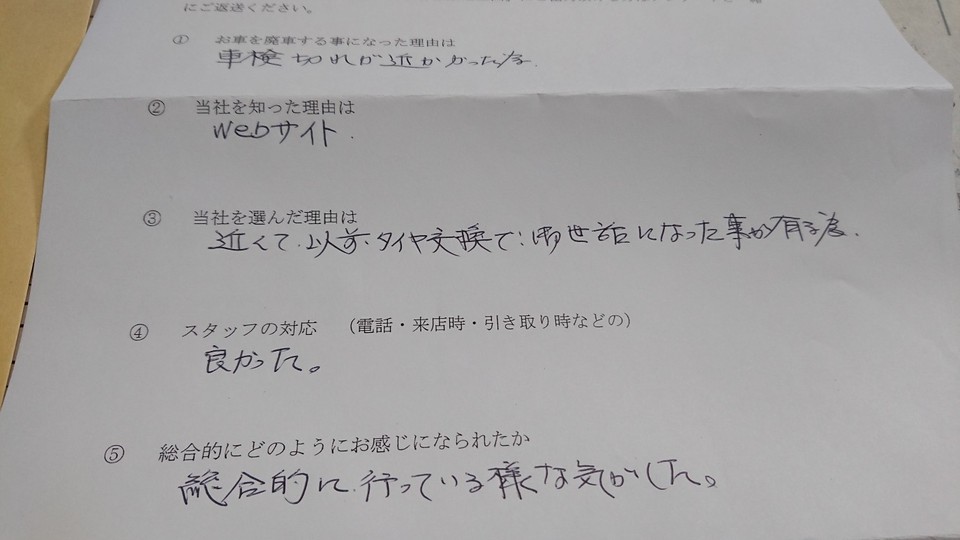 にご返送ください。
① お車を廃車する事になった理由は
車検切れが近かかった為.
② 当社を知った理由は
Webサイト.
③ 当社を選んだ理由は
近くて.以前.タイヤ交換で.御世話になった事が有る為.
④ スタッフの対応 （電話・来店時・引き取り時などの）
良かった。
⑤ 総合的にどのようにお感じになられたか
総合的に.行っている様な気がした。